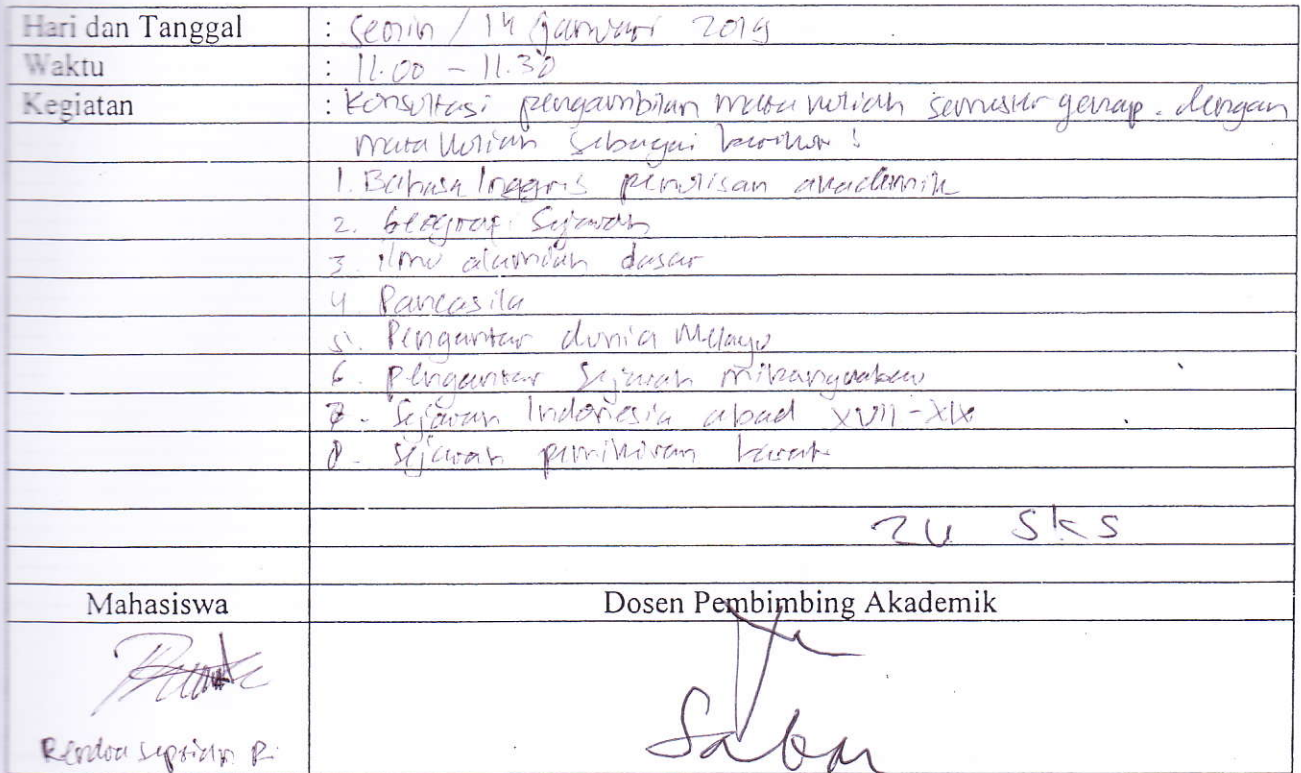 Hari dan Tanggal : Senin / 14 januari 2019
Waktu : 11.00 - 11.30
Kegiatan : Konsultasi pengambilan mata kuliah semester genap. dengan
mata kuliah sebagai berikut :
1. Bahasa Inggris penulisan akademik
2. Geografi Sejarah
3. ilmu alamiah dasar
4. Pancasila
5. Pengantar dunia Melayu
6. Pengantar Sejarah minangkabau
7. Sejarah Indonesia abad XVII-XIX
8. Sejarah pemikiran barat
24 SKS
Mahasiswa Dosen Pembimbing Akademik
Septian P.
Sabar